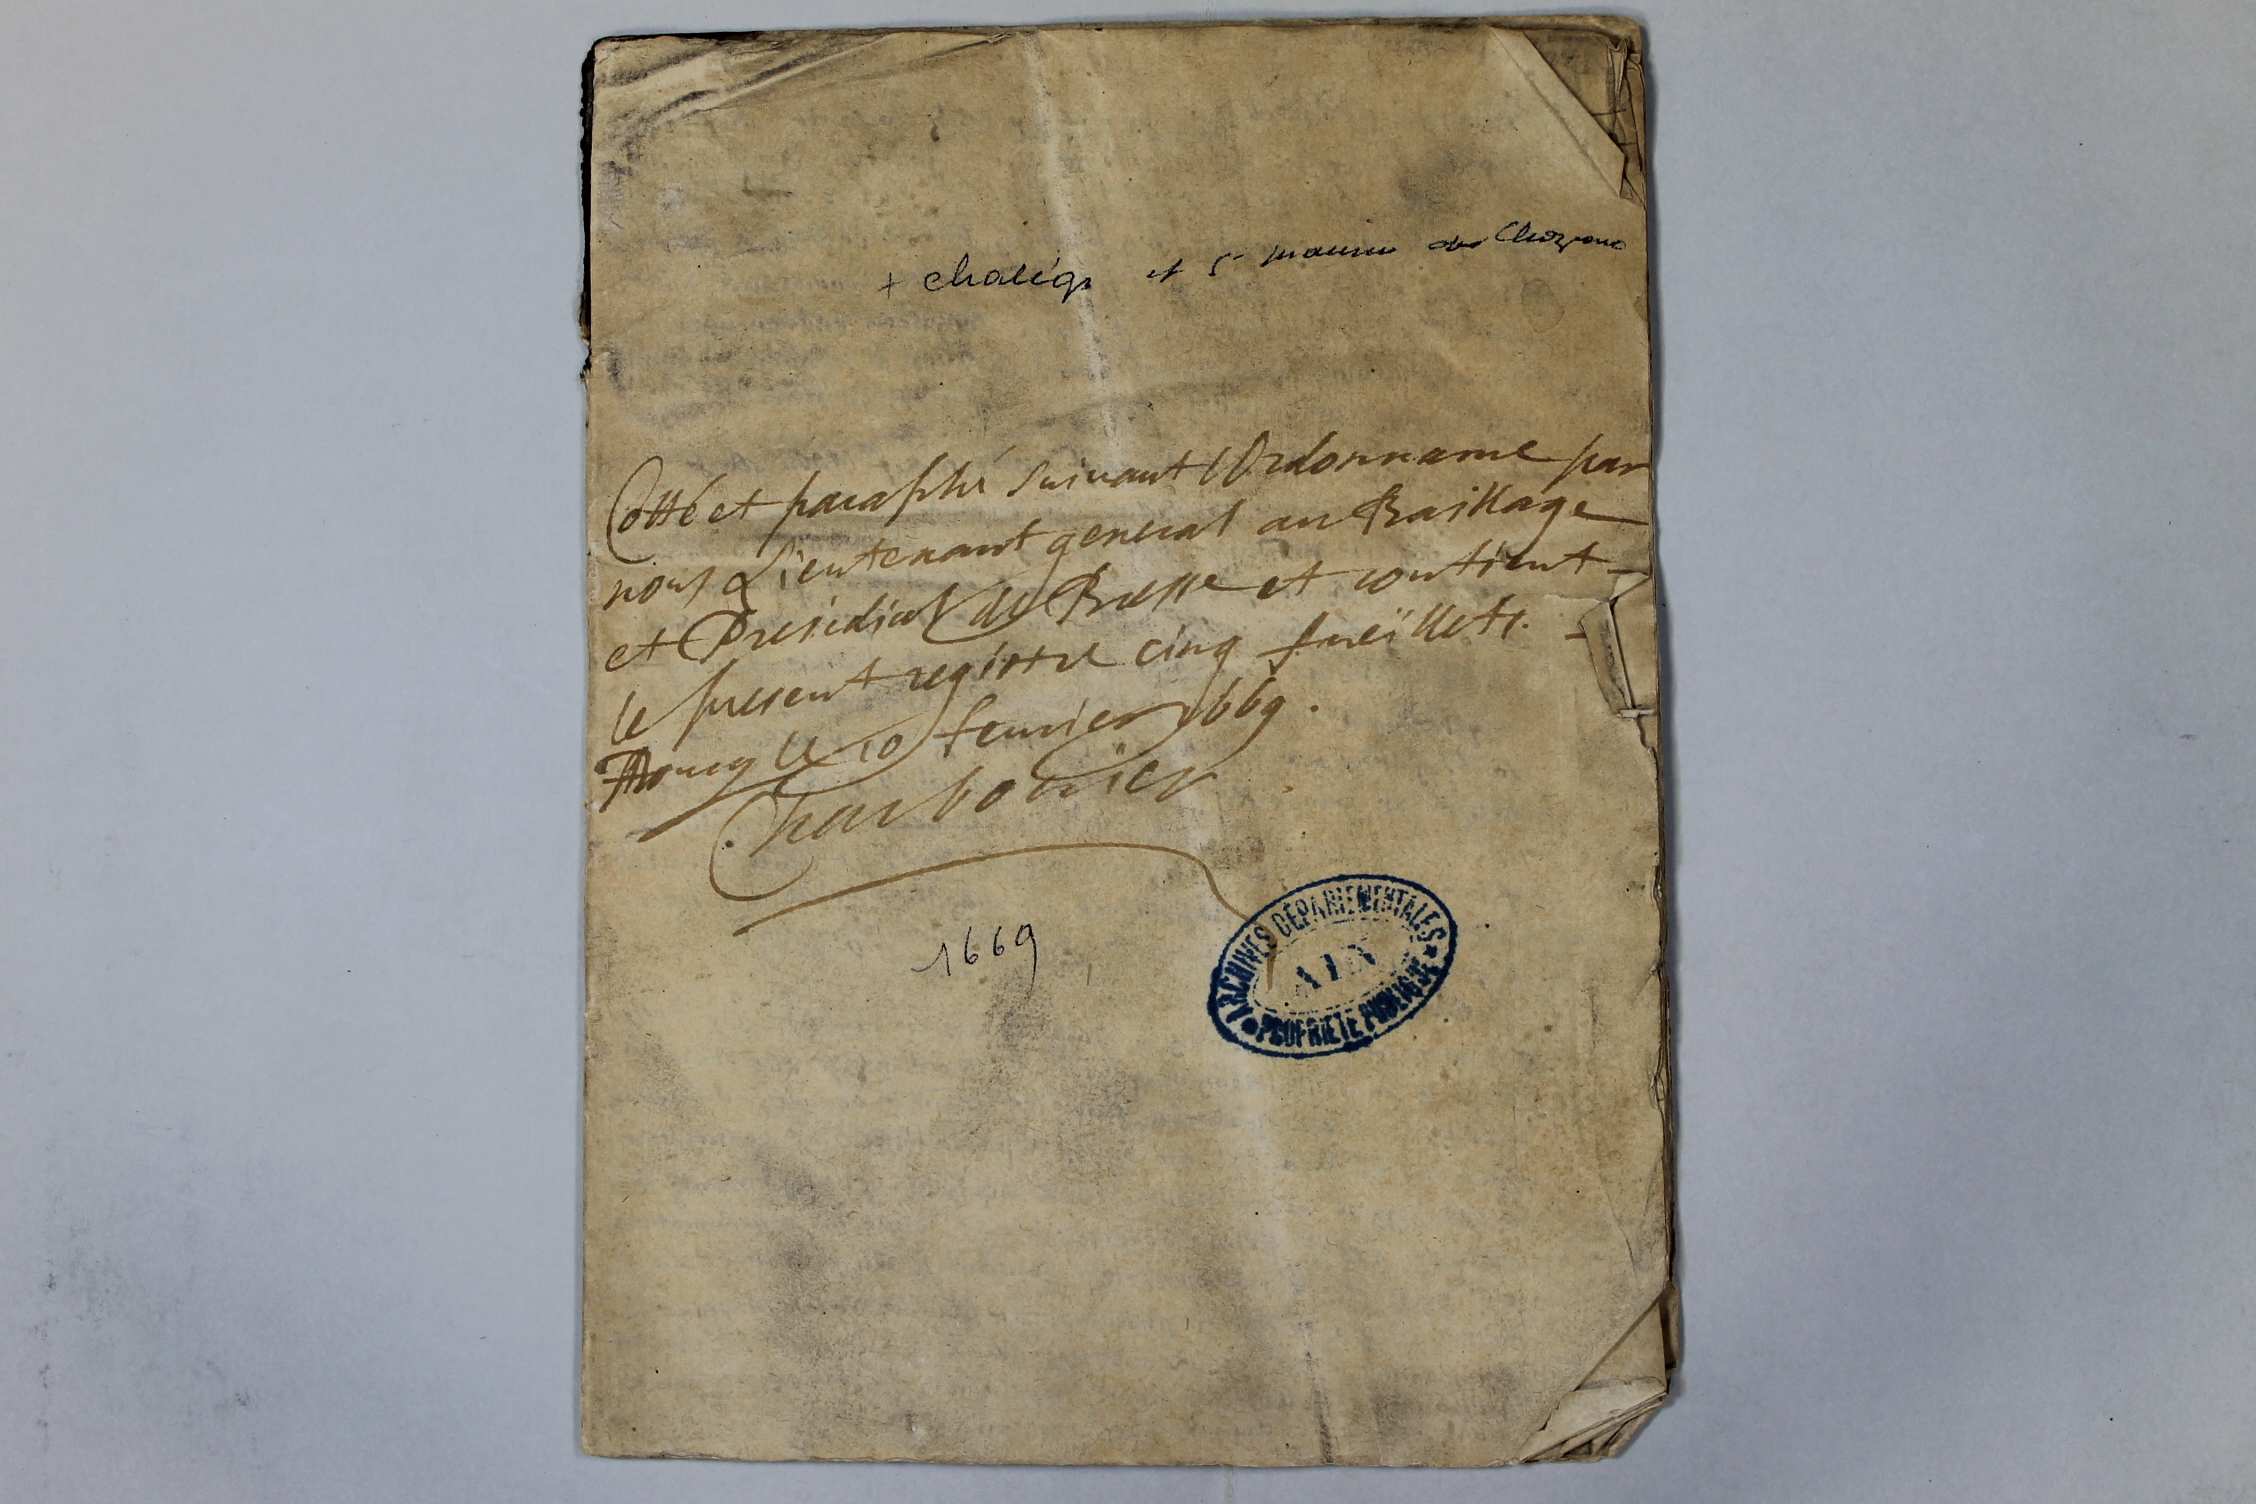 + Chaleins et St maurice de Chazeaux
Cotté et paraphé suivant l'Ordonnance par
nous Lieutenant general au Baillage
et Presidial de Bresse et contient
le present registre cinq fueïllets.
A Bourg le 10 feurier 1669.
Charbonnier
1669
ARCHIVES DÉPARTEMENTALES
AIN
PROPRIÉTÉ PUBLIQUE